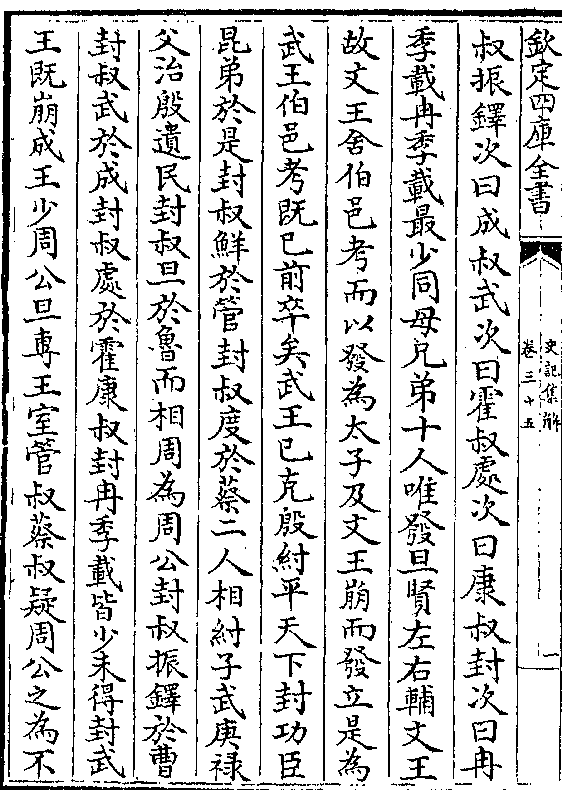 欽定四庫全書
史記集解
卷三十五
一
叔振鐸次曰成叔武次曰霍叔處次曰康叔封次曰冉
季載冉季載最少同母兄弟十人唯發旦賢左右輔文王
故文王舍伯邑考而以發為太子及文王崩而發立是為
武王伯邑考既已前卒矣武王已克殷紂平天下封功臣
昆弟於是封叔鮮於管封叔度於蔡二人相紂子武庚祿
父治殷遺民封叔旦於魯而相周為周公封叔振鐸於曹
封叔武於成封叔處於霍康叔封冉季載皆少未得封武
王既崩成王少周公旦專王室管叔蔡叔疑周公之為不